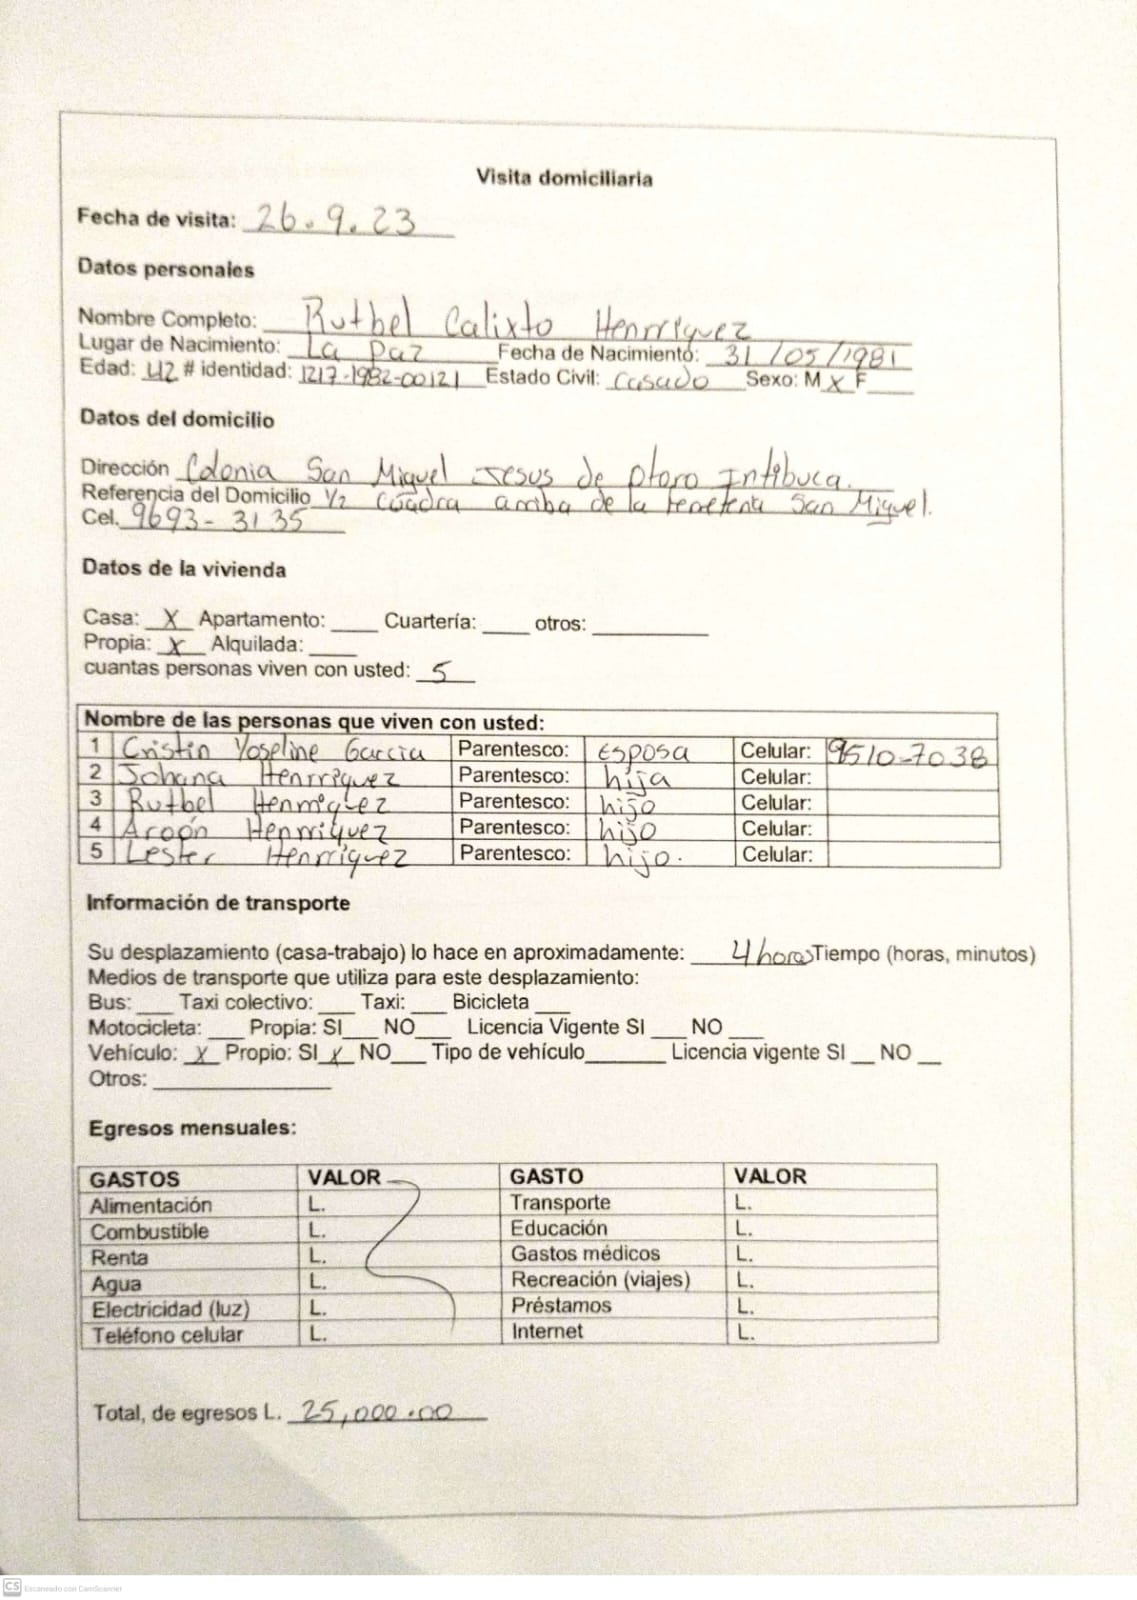 Visita domiciliaria
Fecha de visita: 26.9.23
Datos personales
Nombre Completo: Rutbel Calixto Henrriquez
Lugar de Nacimiento: La paz Fecha de Nacimiento: 31/05/1981
Edad: 42 # identidad: 1217-1982-00121 Estado Civil: Casado Sexo: M X F
Datos del domicilio
Dirección Colonia San Miguel Jesus de otoro Intibuca.
Referencia del Domicilio 1/2 cuadra arriba de la San Miguel.
Cel. 9693-3135
Datos de la vivienda
Casa: X Apartamento: ____ Cuartería: ____ otros: ____
Propia: X Alquilada: ____
cuantas personas viven con usted: 5
Nombre de las personas que viven con usted:
1 Cristin Yoseline Garcia Parentesco: Esposa Celular: 9510-7038
2 Johana Henrriquez Parentesco: hija Celular:
3 Rutbel Henrriquez Parentesco: hijo Celular:
4 Aroon Henrriquez Parentesco: hijo Celular:
5 Lester Henrriquez Parentesco: hijo. Celular:
Información de transporte
Su desplazamiento (casa-trabajo) lo hace en aproximadamente: 4 horas Tiempo (horas, minutos)
Medios de transporte que utiliza para este desplazamiento:
Bus: ___ Taxi colectivo: ___ Taxi: ___ Bicicleta ___
Motocicleta: ___ Propia: SI___ NO___ Licencia Vigente SI ___ NO ___
Vehículo: X Propio: SI X NO___ Tipo de vehículo_______ Licencia vigente SI __ NO __
Otros: _______________
Egresos mensuales:
GASTOS VALOR GASTO VALOR
Alimentación L. Transporte L.
Combustible L. Educación L.
Renta L. Gastos médicos L.
Agua L. Recreación (viajes) L.
Electricidad (luz) L. Préstamos L.
Teléfono celular L. Internet L.
Total, de egresos L. 25,000.00
CS Escaneado con CamScanner